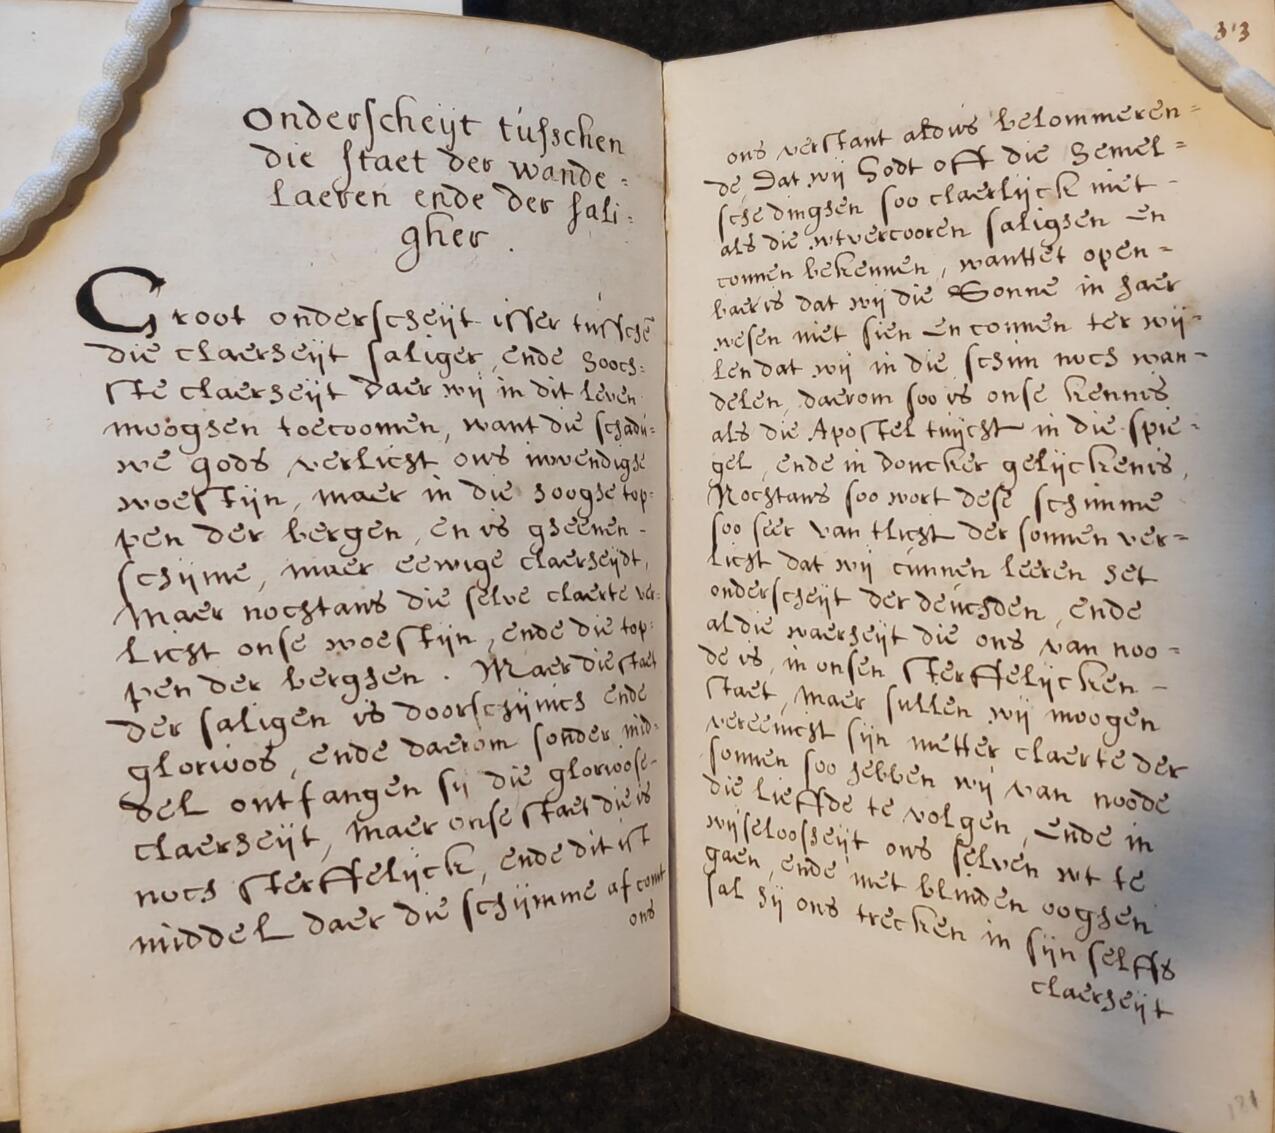 onderscheijt tusschen
die staet der wande=
laeren ende der sali=
gher.
Groot onderscheijt isser tussche
die claerheijt saliger, ende hooch=
ste claerheijt daer wij in dit leven
mooghen toecoomen, want die schadu=
we gods verlicht ons inwendighe
woestijn, maer in die hooghe top=
pen der bergen, en is gheenen-
schijme, maer eewige claerheijdt,
Maer nochtans die selve claerte ver=
licht onse woestijn, ende die top=
pen der berghen. Maer die staet
der saligen is doorschijnich ende
glorioos, ende daerom sonder mid=
del ontfangen sij die glorioose-
claerheijt, maer onse staet die is
noch sterffelijck, ende dit ist
middel daer die schijmme af comt
ons
313
ons verstant aldus belommeren=
de Dat wij Godt off die hemel=
sche dinghen soo claerlijck niet-
als die wtvercooren salighen en
connen bekennen, wanttet open=
baer is dat wij die Sonne in haer
wesen niet sien en connen ter wij=
len dat wij in die schim noch wan-
delen, daerom soo is onse kennis
als die Apostel tuijcht in die spie=
gel, ende in doncker gelijckenis,
Nochtans soo wort dese schimme
soo seer van tlicht der sonnen ver=
licht dat wij cunnen leeren het
onderscheijt der deuchden, ende
al die waerheijt die ons van noo=
de is, in onsen sterffelijcken-
staet, maer sullen wij moogen
vereenicht sijn metter claerte der
sonnen soo hebben wij van noode
die lieffde te volgen, ende in
wijseloosheijt ons selven wt te
gaen, ende met blinden ooghen
sal hij ons trecken in sijn selffs
claerheijt
121